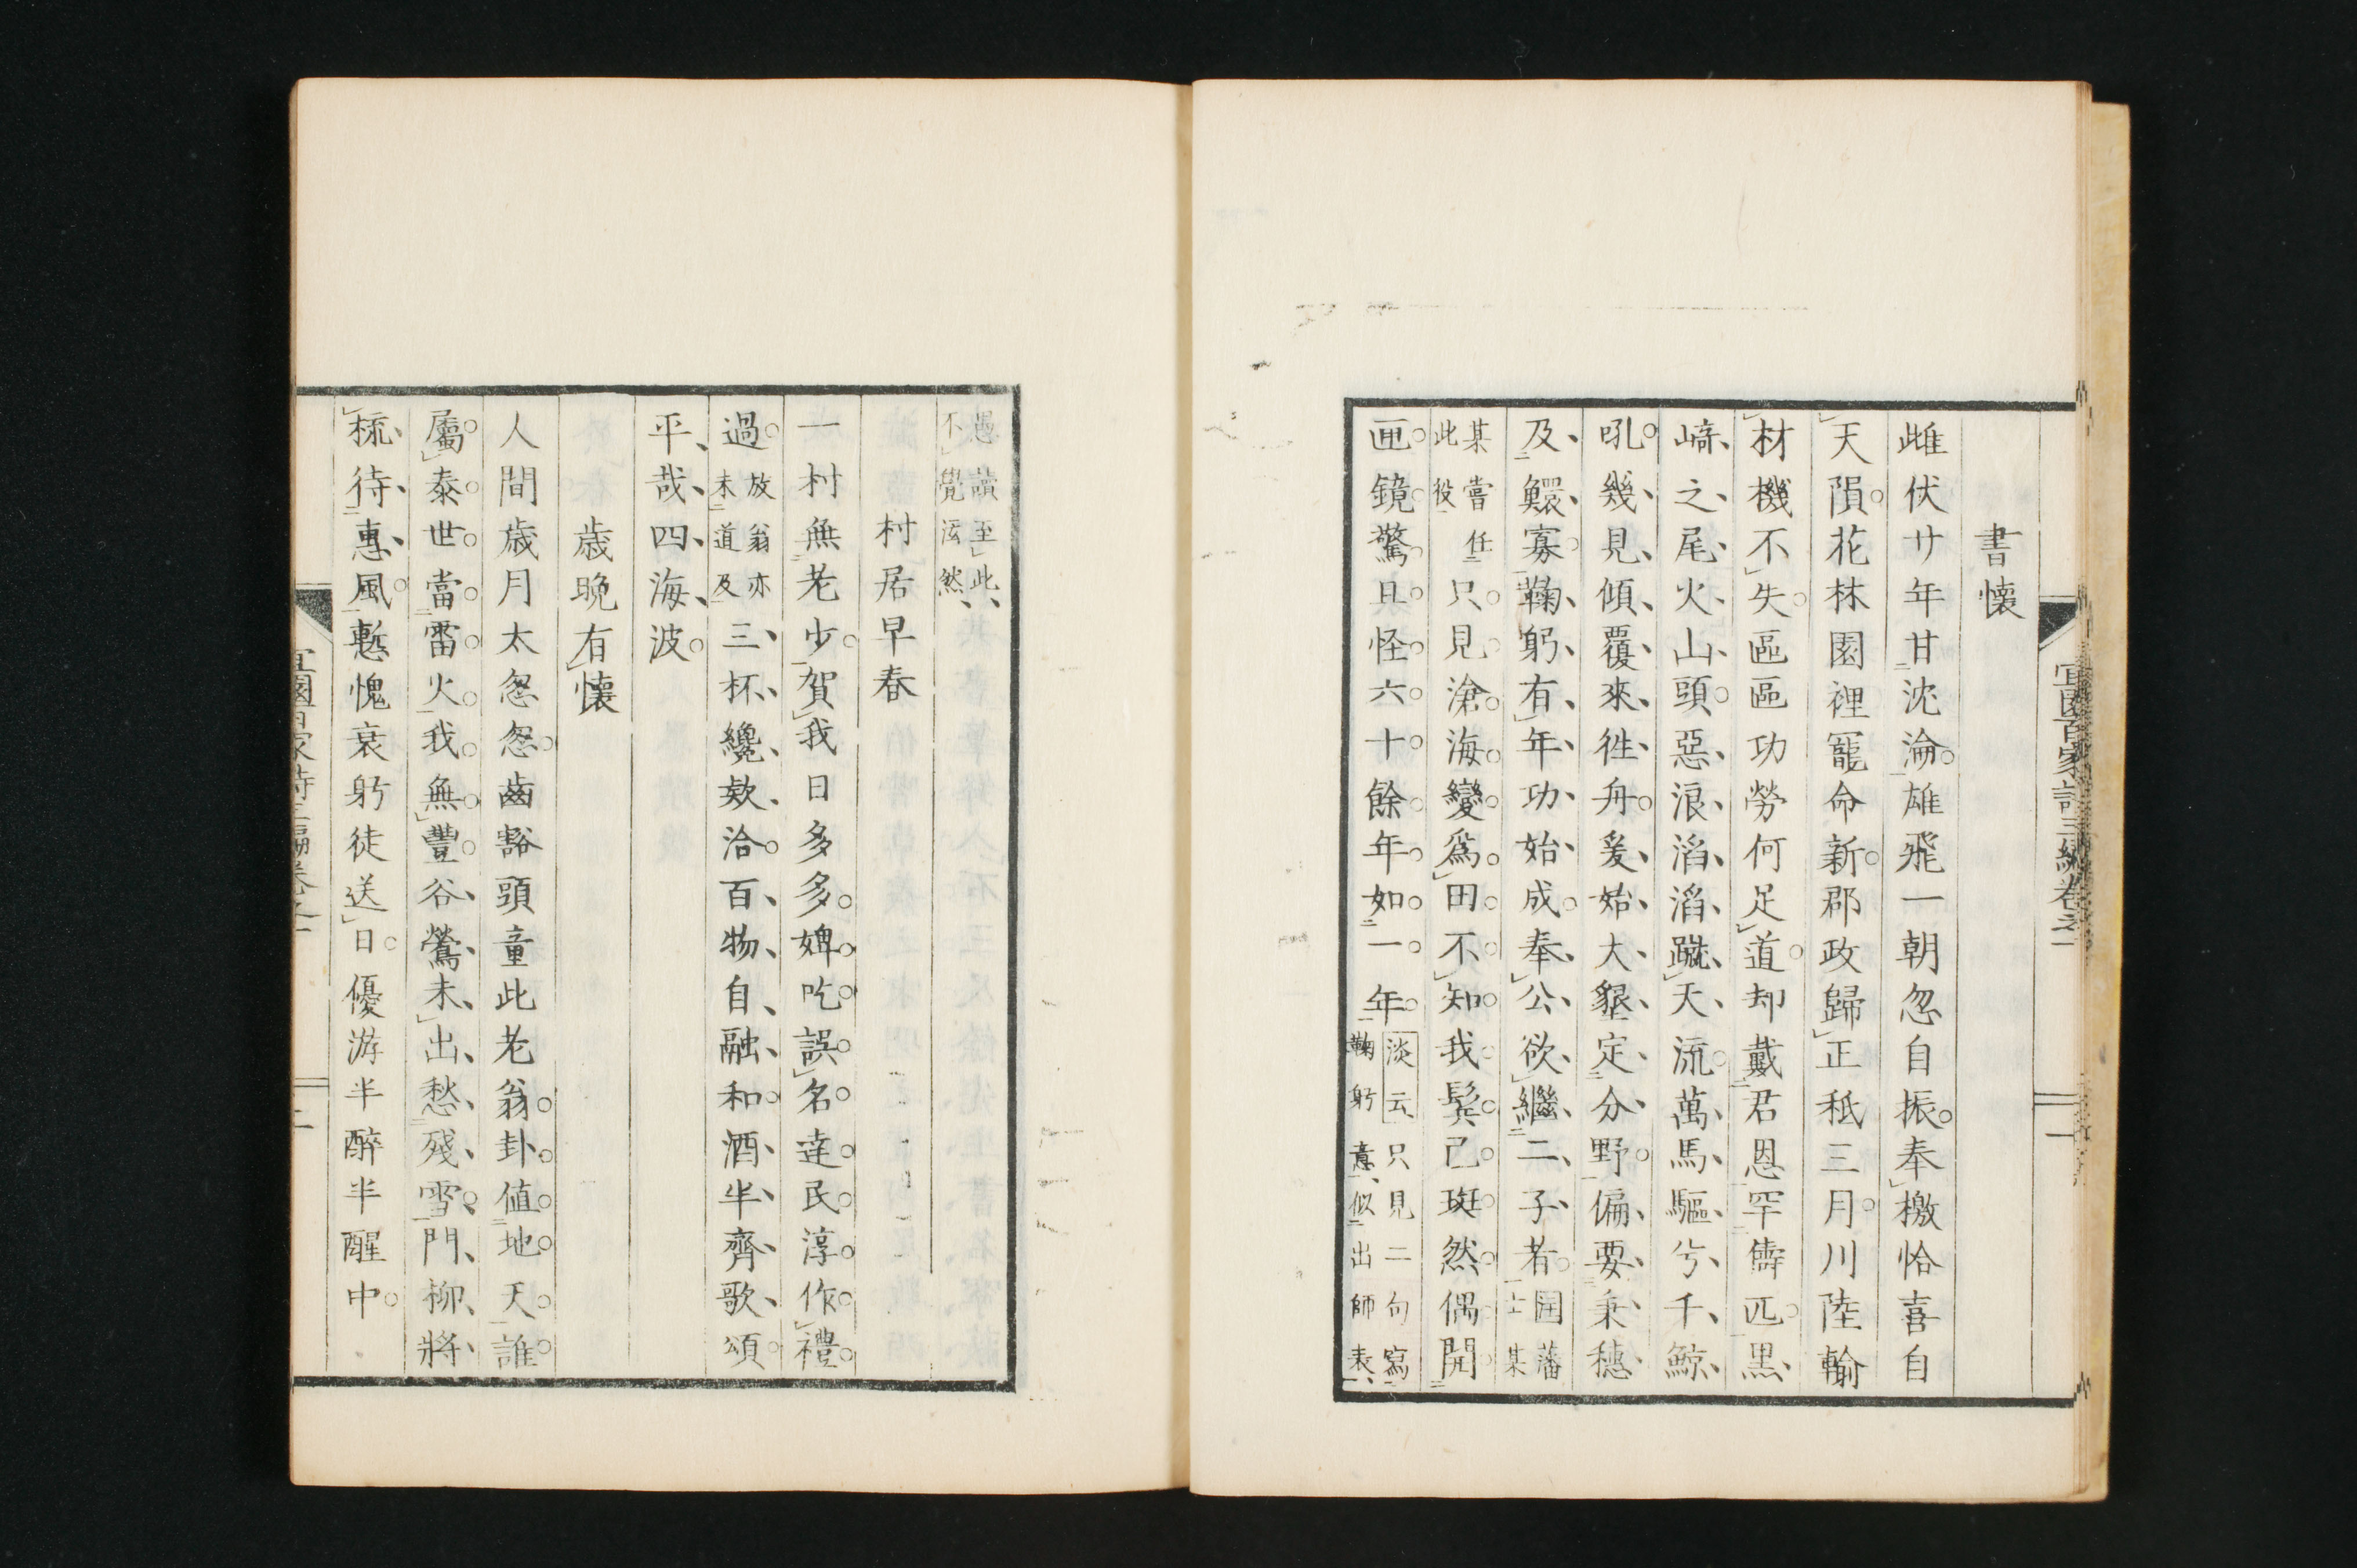 宜園百家詩三編卷之一
一
書懷
雌伏廿年甘沈淪雄飛一朝忽自振奉檄恰喜自
天隕花林園裡寵命新郡政歸正秪三月川陸輸
材機不失區區功勞何足道却戴君恩罕儔匹黑
﨑之尾火山頭惡浪滔滔蹴天流萬馬驅兮千鯨
吼幾見傾覆來徃舟爰始大墾定分野偏要秉穗
及鰥寡鞠躬有年功始成奉公欲繼二子者國藩士某
某嘗任此役只見滄海變爲田不知我鬂已斑然偶開
匣鏡驚且怪六十餘年如一年淡云只見二句寫鞠躬意似出師表
愚讀至此不覺泫然
村居早春
一村無老少賀我日多多婢吃誤名達民淳作禮
過放翁亦未道及三杯纔欸洽百物自融和酒半齊歌頌
平哉四海波
歲晚有懷
人間歲月太怱怱齒豁頭童此老翁卦値地天誰
屬泰世當雷火我無豐谷鶯未出愁殘雪門柳將
梳待惠風慙愧衰躬徒送日優游半醉半醒中
宜園百家詩三編卷之一
二